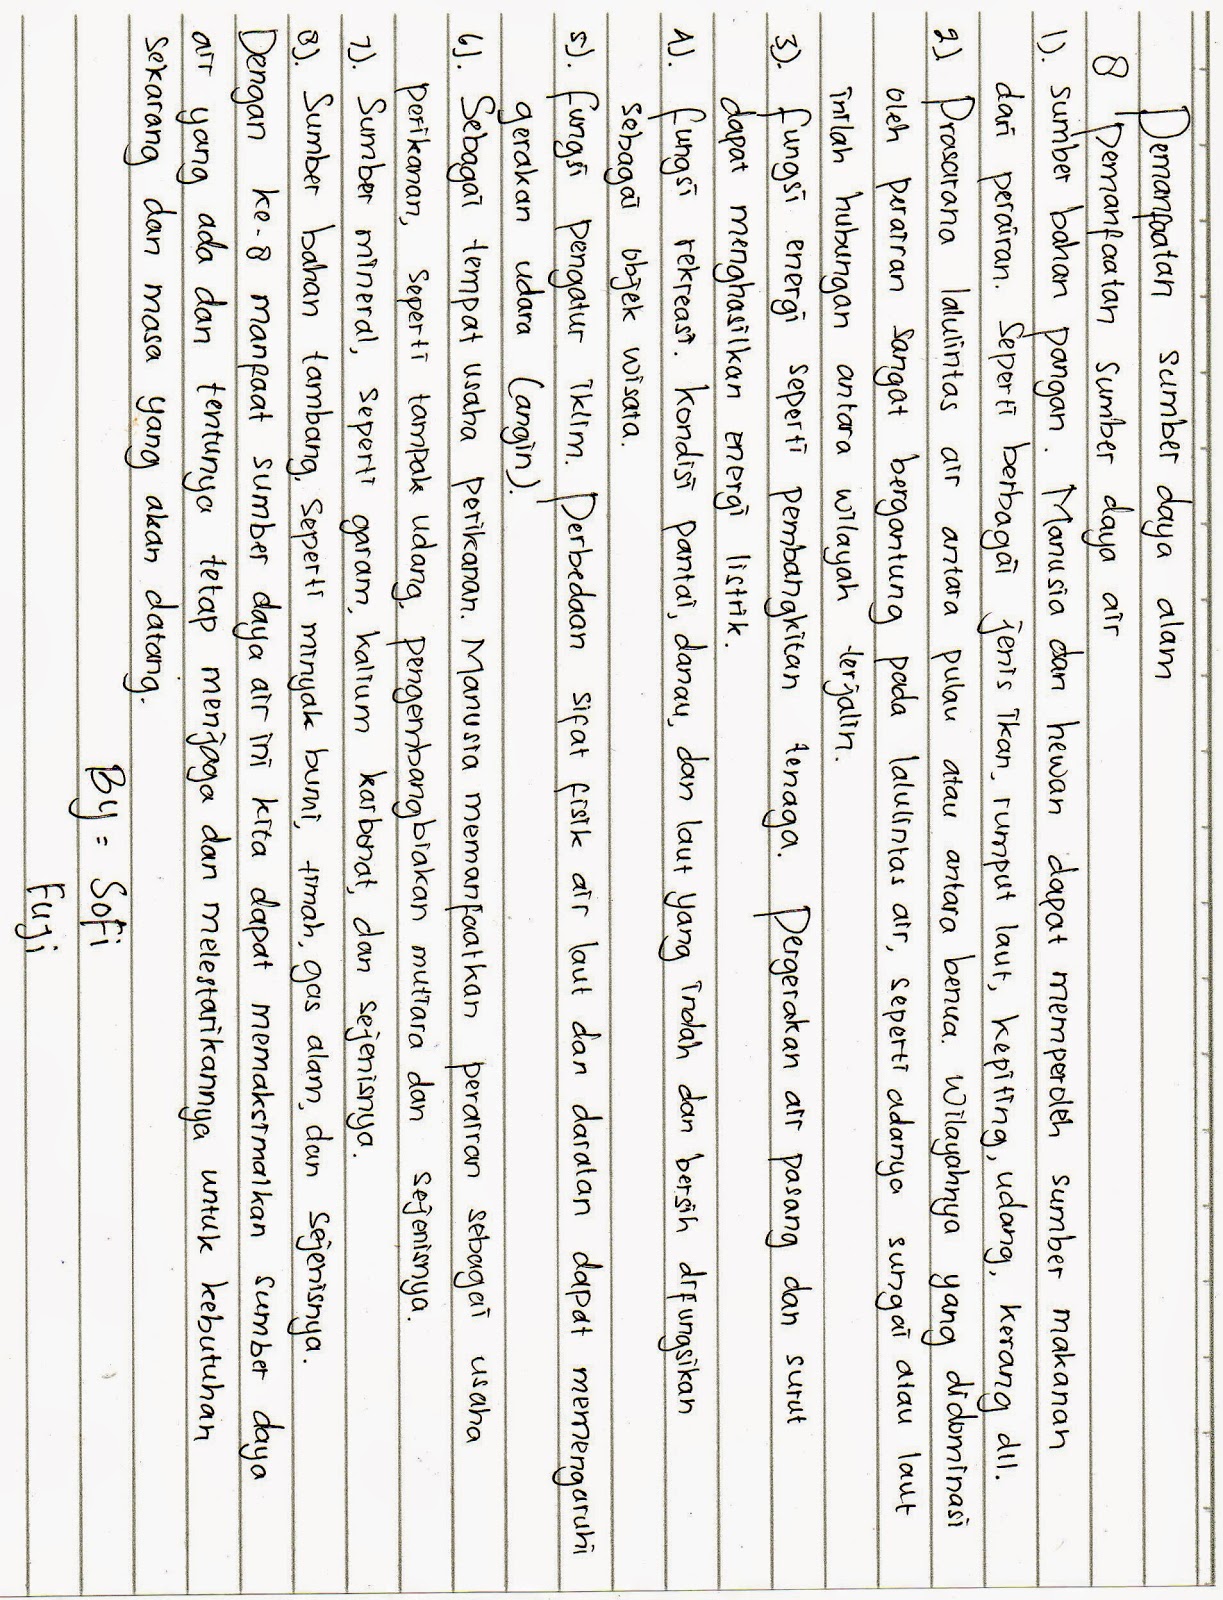 Pemanfaatan sumber daya alam
8 Pemanfaatan sumber daya air
1). Sumber bahan pangan. Manusia dan hewan dapat memperoleh sumber makanan
dari perairan. Seperti berbagai jenis ikan, rumput laut, kepiting, udang, kerang dll.
2) Prasarana lalulintas air antara pulau atau antara benua. Wilayahnya yang didominasi
oleh perairan sangat bergantung pada lalulintas air, seperti adanya sungai atau laut
inilah hubungan antara wilayah terjalin.
3). Fungsi energi seperti pembangkitan tenaga. Pergerakan air pasang dan surut
dapat menghasilkan energi listrik.
4). Fungsi rekreasi. Kondisi pantai, danau, dan laut yang indah dan bersih difungsikan
sebagai objek wisata.
5). Fungsi pengatur iklim. Perbedaan sifat fisik air laut dan daratan dapat memengaruhi
gerakan udara (angin).
6). Sebagai tempat usaha perikanan. Manusia memanfaatkan perairan sebagai usaha
perikanan, seperti tampak udang, pengembangbiakan mutiara dan sejenisnya.
7). Sumber mineral, seperti garam, kalium karbonat, dan sejenisnya.
8). Sumber bahan tambang, seperti minyak bumi, timah, gas alam, dan sejenisnya.
Dengan ke-8 manfaat sumber daya air ini kita dapat memaksimalkan sumber daya
air yang ada dan tentunya tetap menjaga dan melestarikannya untuk kebutuhan
sekarang dan masa yang akan datang.
By = Sofi
Fuji